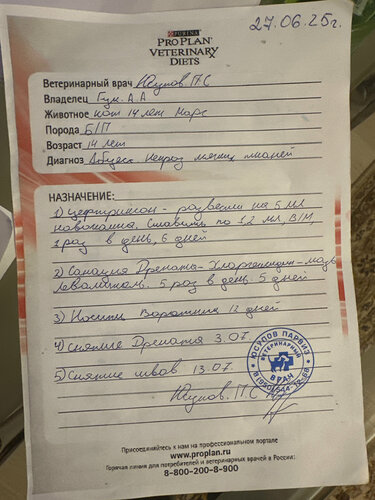 27.06.25г.
PURINA
PRO PLAN
VETERINARY
DIETS
Ветеринарный врач Юсупов П С
Владелец Гум. А.А
Животное кот 14 лет Марс
Порода Б/П
Возраст 14 лет
Диагноз Абцесс Некроз мягких тканей
НАЗНАЧЕНИЕ:
1) Цефтриаксон - развести на 5 мл
новокаина. Ставить по 1.2 мл, В/М,
раз в день, 6 дней
2) Санация Дренаты - Хлоргексидин - мазь
Левомиколь. 5 раз в день. 5 дней
3) Носить Воротник 12 дней
4) Снятие Дрената 3.07.
5) Снятие швов 13.07.
Юсупов. П С
ЮСУПОВ ПАРВИЗ
ВЕТЕРИНАРНЫЙ
ВРАЧ
Присоединяйтесь к нам на профессиональном портале
www.proplan.ru
Горячая линия для потребителей и ветеринарных врачей в России:
8-800-200-8-900